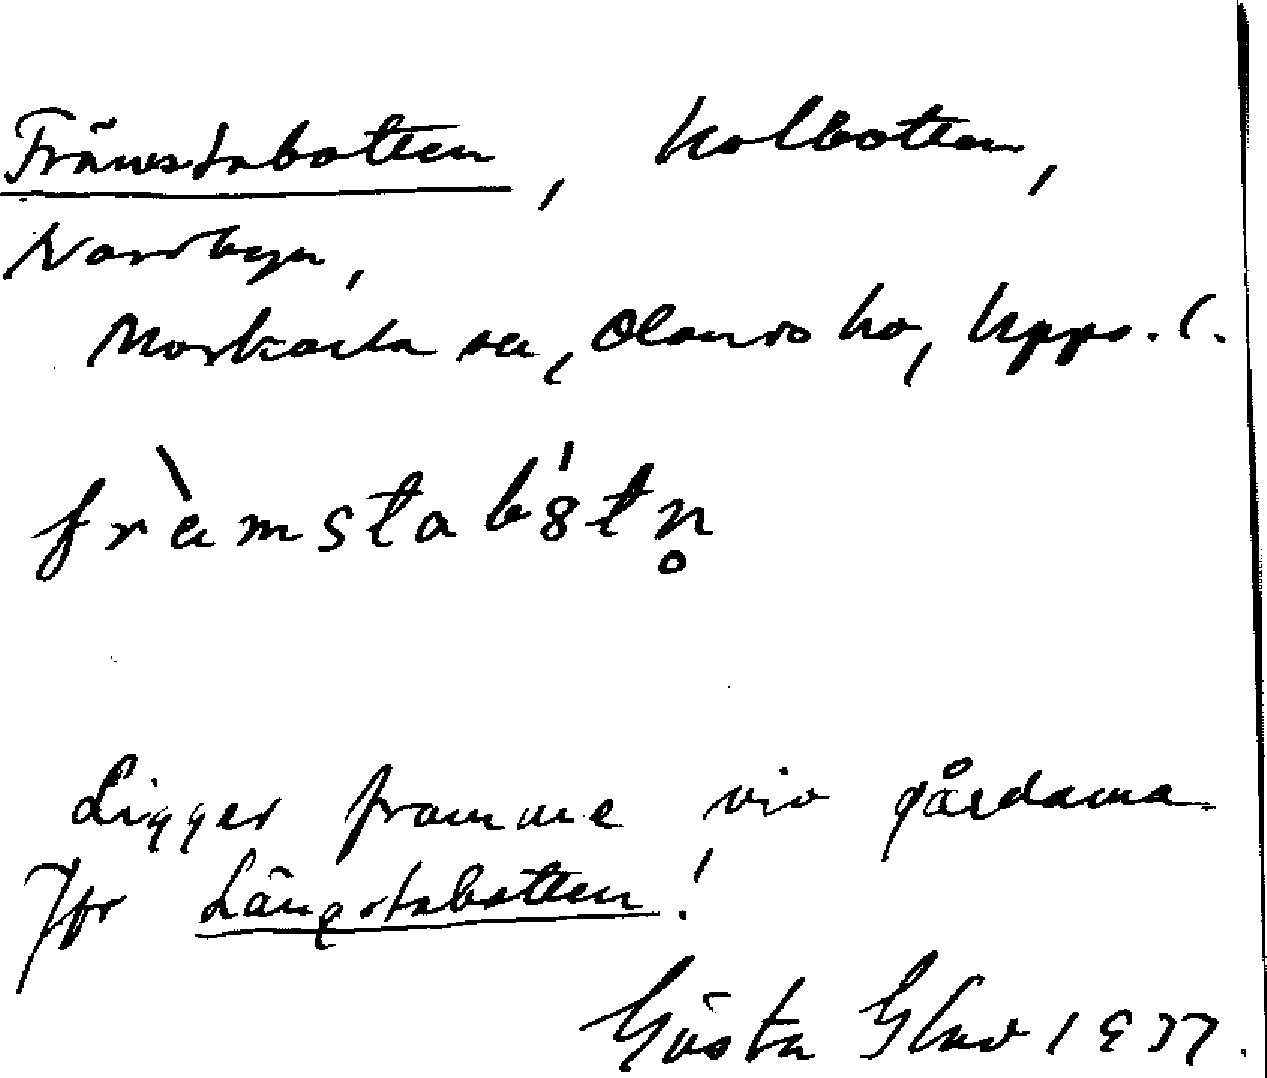 Främstabotten, kolbotten,
Nordbyn,
Morkarla sn, Olands hd, Upps. l.
främstabȯtn̥
Ligger framme vid gårdarna
Jfr Längstabotten!
Gösta Elav 1937.